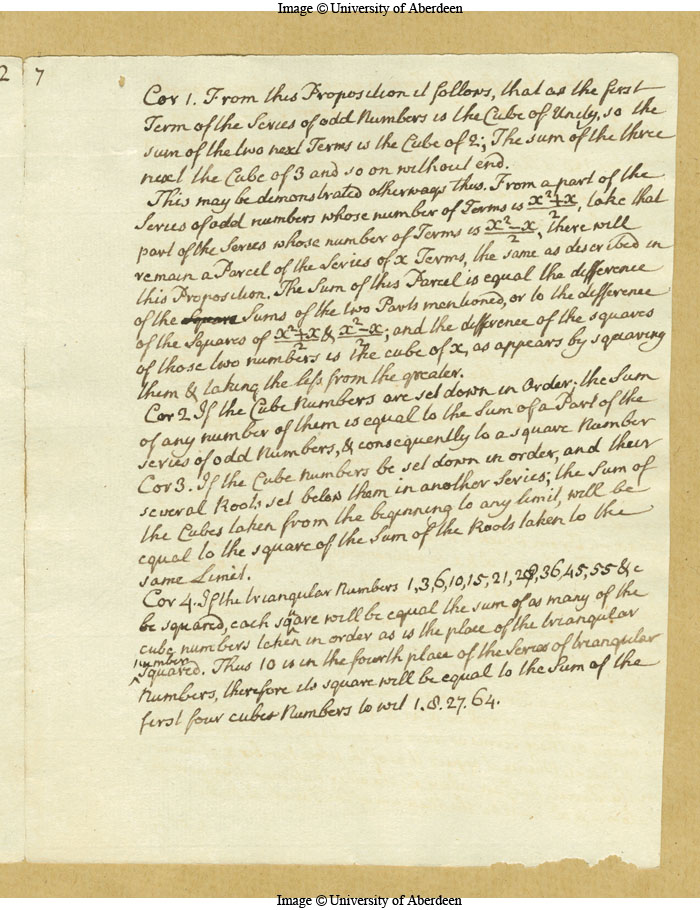 Image © University of Aberdeen
2 7
Cor 1. From this Proposition it follows, that as the first
Term of the Series of odd Numbers is the Cube of Unity, so the
sum of the two next Terms is the Cube of 2; The sum of the three
next the Cube of 3 and so on without end.
This may be demonstrated otherways thus. From a part of the
Series of odd numbers whose number of Terms is x²+x/2, take that
part of the Series whose number of Terms is x²-x/2, there will
remain a Parcel of the Series of x Terms, the same as described in
this Proposition. The Sum of this Parcel is equal the difference
of the Square Sums of the two Parts mentioned, or to the difference
of the Squares of x²+x/2 & x²-x/2; and the difference of the squares
of those two numbers is the cube of x, as appears by squaring
them & taking the less from the greater.
Cor 2 If the Cube Numbers are set down in Order; the Sum
of any number of them is equal to the Sum of a Part of the
series of odd Numbers, & consequently to a square Number
Cor 3. If the Cube Numbers be set down in order, and their
several Roots set below them in another Series; the Sum of
the Cubes taken from the beginning to any limit, will be
equal to the square of the Sum of the Roots taken to the
same Limit.
Cor 4. If the triangular Numbers 1,3,6,10,15,21,28,36,45,55 &c
be squared, each square will be equal the sum of as many of the
cube numbers taken in order as is the place of the triangular
number squared. Thus 10 is in the fourth place of the Series of triangular
Numbers, therefore its square will be equal to the Sum of the
first four cube Numbers to wit 1. 8. 27. 64.
Image © University of Aberdeen